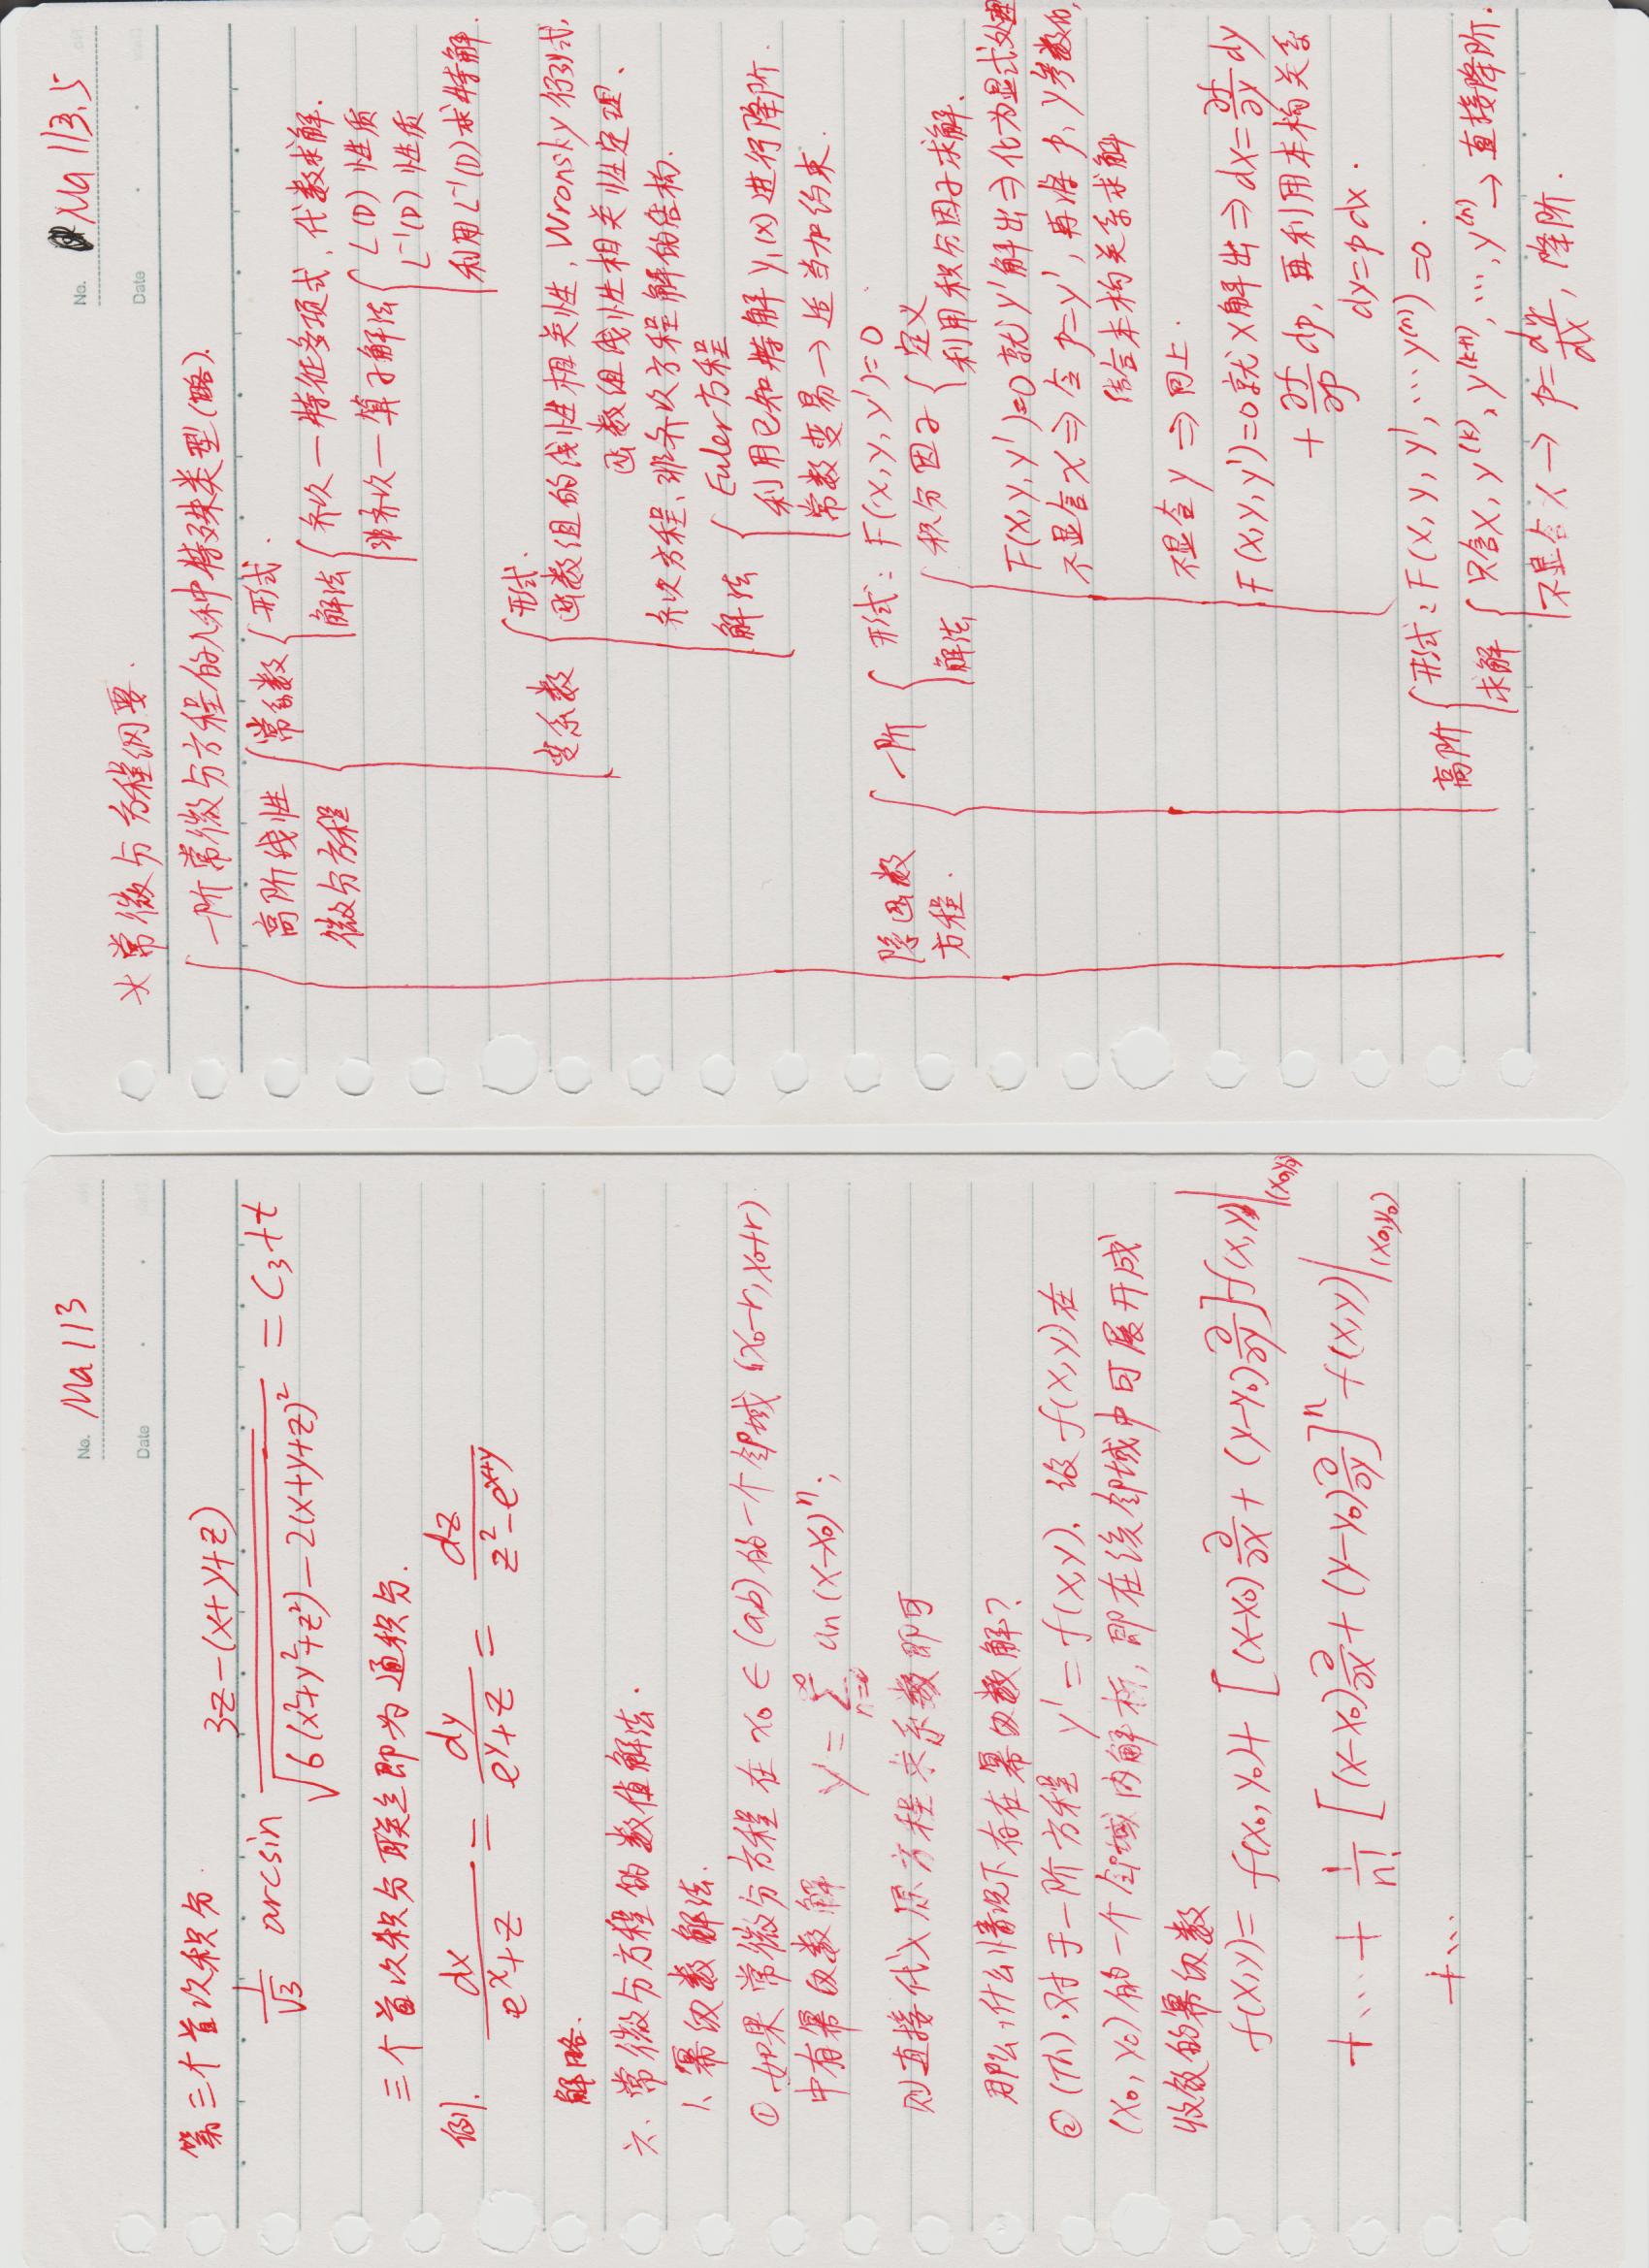 No. Ma 113
Date
第三个首次积分.
1/√3 arcsin (3z-(x+y+z))/√(6(x²+y²+z²)-2(x+y+z)²) = C₃+t
三个首次积分联立即为通积分.
例. dx/(eˣ+z) = dy/(eʸ+z) = dz/(z²-eˣ⁺ʸ)
解略.
六. 常微分方程的数值解法.
1. 幂级数解法.
① 如果常微分方程在 x₀∈(a,b) 的一个邻域 (x₀-r, x₀+r)
中有幂级数解 y = ∑_{n=0}^{∞} aₙ(x-x₀)ⁿ;
则直接代入原方程求系数即可
那么,什么情况下存在幂级数解?
② (Th). 对于一阶方程 y' = f(x,y). 设 f(x,y) 在
(x₀, y₀) 的一个邻域内解析, 即在该邻域中可展开成
收敛的幂级数
f(x,y) = f(x₀,y₀)+ [(x-x₀)∂/∂x + (y-y₀)∂/∂y] f(x,y)|(x₀,y₀)
+ … + 1/n! [(x-x₀)∂/∂x + (y-y₀)∂/∂y]ⁿ f(x,y)|(x₀,y₀)
+ …
No. Ma 113.5
Date
* 常微分方程纲要.
一阶常微分方程的几种特殊类型(略).
高阶线性
微分方程
常系数
形式.
解法
齐次—特征多项式, 代数求解.
非齐次—算子解法
L(D) 性质
L⁻¹(D) 性质
利用 L⁻¹(D) 求特解.
变系数
形式.
函数组的线性相关性, Wronsky 行列式,
函数组线性相关性定理.
齐次方程、非齐次方程解的结构.
解法
Euler 方程
利用已知特解 y₁(x) 进行降阶.
常数变易 → 适当加约束.
隐函数
方程.
一阶
形式: F(x,y,y')=0
解法
积分因子
定义
利用积分因子求解.
F(x,y,y')=0 就 y' 解出 ⇒ 化为显式处理
不显含 x ⇒ 令 p=y', 再将 p、y 参数化,
结合本构关系求解
不显含 y ⇒ 同上.
F(x,y,y')=0 就 x 解出 ⇒ dx = ∂f/∂y dy
+ ∂f/∂p dp, 再利用本构关系
dy=p dx.
高阶
形式: F(x, y, y', … y⁽ⁿ⁾) =0.
求解
只含 x, y⁽ᵏ⁾, y⁽ᵏ⁺¹⁾, …, y⁽ⁿ⁾ → 直接降阶.
不显含 x → p = dy/dx, 降阶.